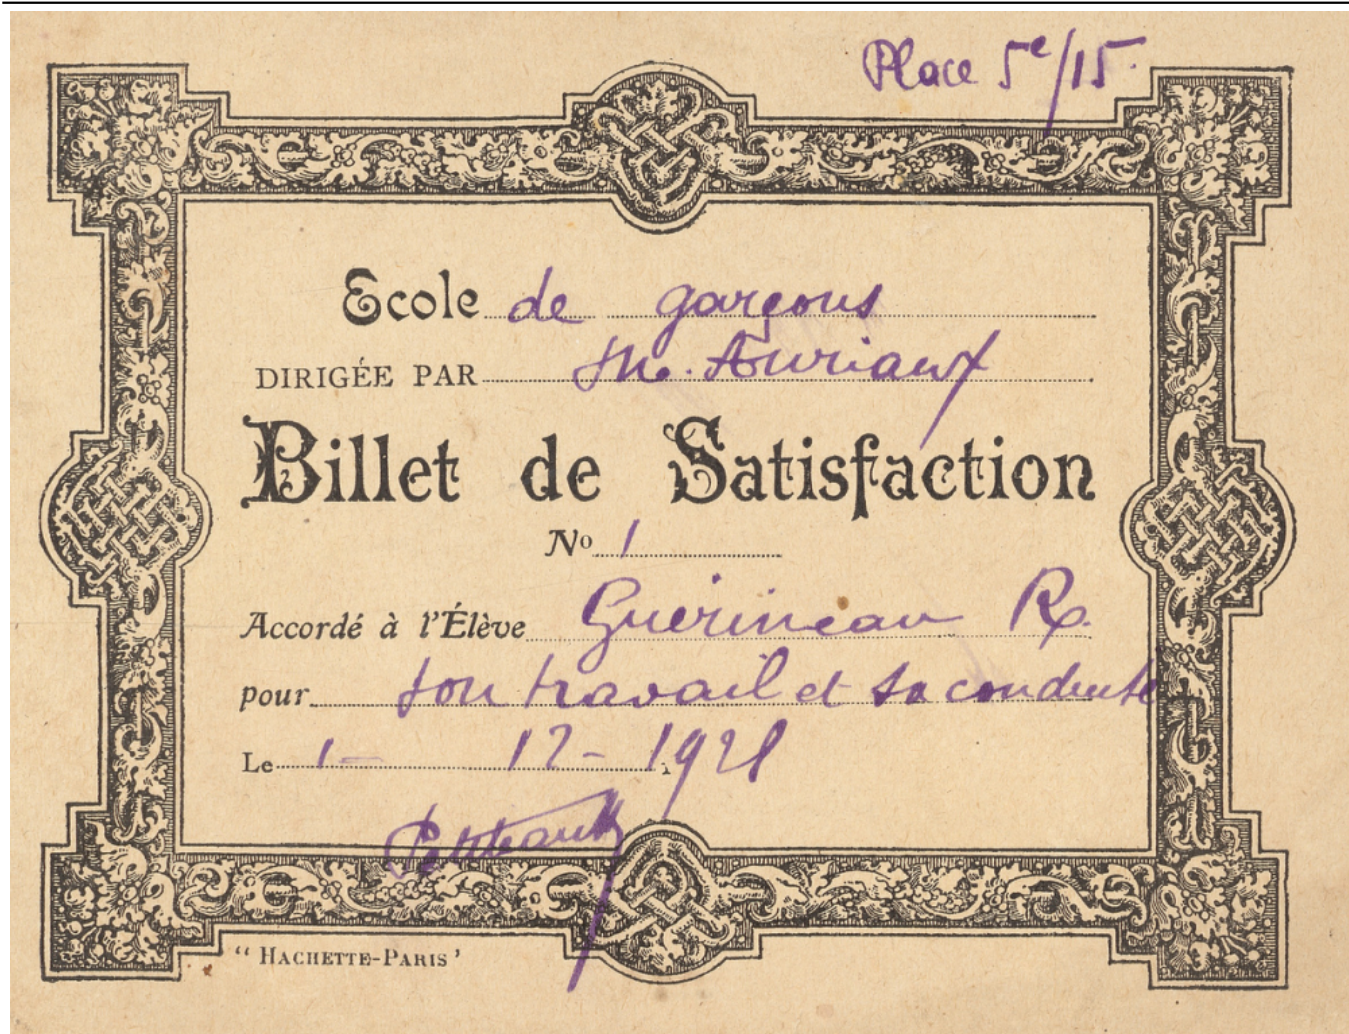 Place 5e/15.
Ecole de garçons
DIRIGÉE PAR M. Auriaux
Billet de Satisfaction
No 1
Accordé à l'Élève Guerineau R.
pour son travail et sa conduite
Le 1- 12- 1928
"HACHETTE-PARIS'